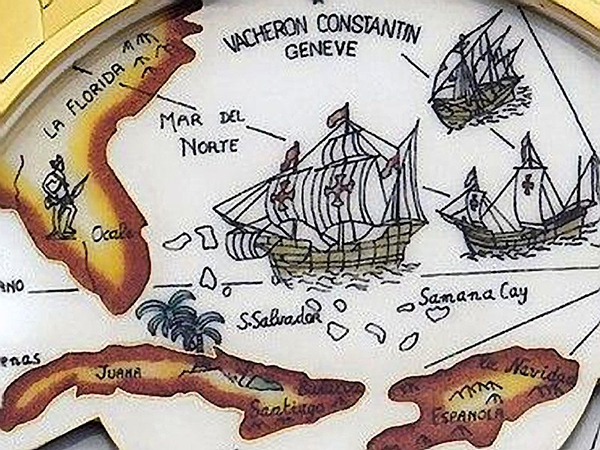 VACHERON CONSTANTIN
GENEVE
LA FLORIDA
MAR DEL
NORTE
Ocale
ANO
Samana Cay
S.Salvador
enas
JUANA
Santiago
La Navidad
ESPANOLA